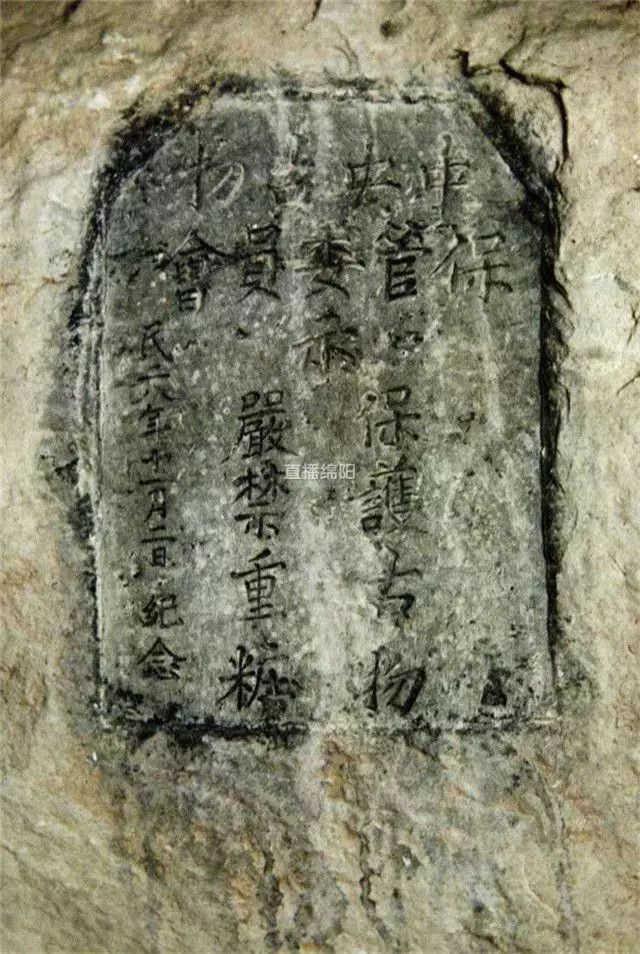 中央古物
保管委員會
示
保護古物
嚴禁重粧
民六年十一月二日紀念
直播绵阳